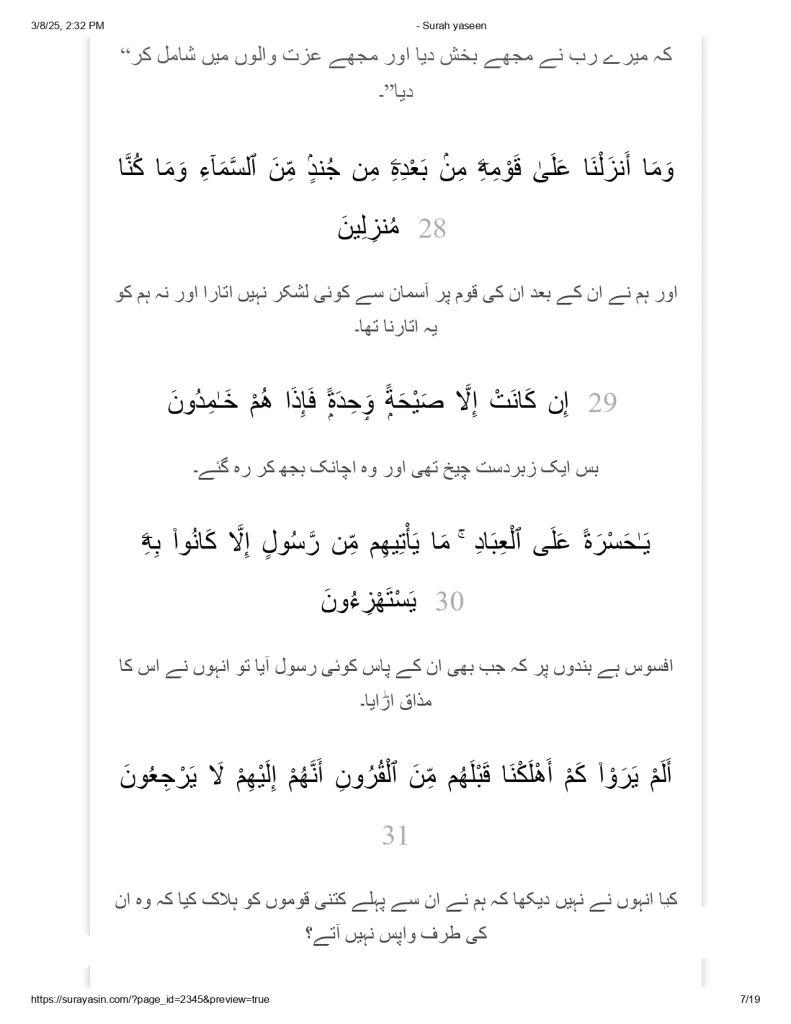 3/8/25, 2:32 PM - Surah yaseen
کہ میرے رب نے مجھے بخش دیا اور مجھے عزت والوں میں شامل کر“
دیا”۔
وَمَا أَنزَلْنَا عَلَىٰ قَوْمِهِۦ مِنۢ بَعْدِهِۦ مِن جُندٍۢ مِّنَ ٱلسَّمَآءِ وَمَا كُنَّا
مُنزِلِينَ 28
اور ہم نے ان کے بعد ان کی قوم پر آسمان سے کوئی لشکر نہیں اتارا اور نہ ہم کو
یہ اتارنا تھا۔
إِن كَانَتْ إِلَّا صَيْحَةًۭ وَٰحِدَةًۭ فَإِذَا هُمْ خَـٰمِدُونَ 29
بس ایک زبردست چیخ تھی اور وہ اچانک بجھ کر رہ گئے۔
يَـٰحَسْرَةً عَلَى ٱلْعِبَادِ ۚ مَا يَأْتِيهِم مِّن رَّسُولٍ إِلَّا كَانُوا۟ بِهِۦ
يَسْتَهْزِءُونَ 30
افسوس ہے بندوں پر کہ جب بھی ان کے پاس کوئی رسول آیا تو انہوں نے اس کا
مذاق اڑایا۔
أَلَمْ يَرَوْا۟ كَمْ أَهْلَكْنَا قَبْلَهُم مِّنَ ٱلْقُرُونِ أَنَّهُمْ إِلَيْهِمْ لَا يَرْجِعُونَ
31
کیا انہوں نے نہیں دیکھا کہ ہم نے ان سے پہلے کتنی قوموں کو ہلاک کیا کہ وہ ان
کی طرف واپس نہیں آتے؟
https://surayasin.com/?page_id=2345&preview=true 7/19